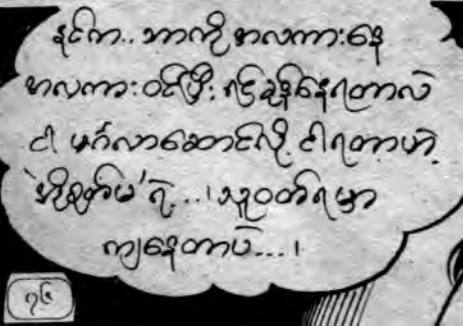 နင်က.. ဘာကို အာလကားနေ
အာလကားဝင်ပြီး ရင်ခုန်နေရတာလဲ
ငါ မင်္ဂလာဆောင်လို့ ငါရတာဟဲ့
ရဲ့...၊ သူဝတ်ရမှာ
ကျနေတာပဲ...၊
၇၆